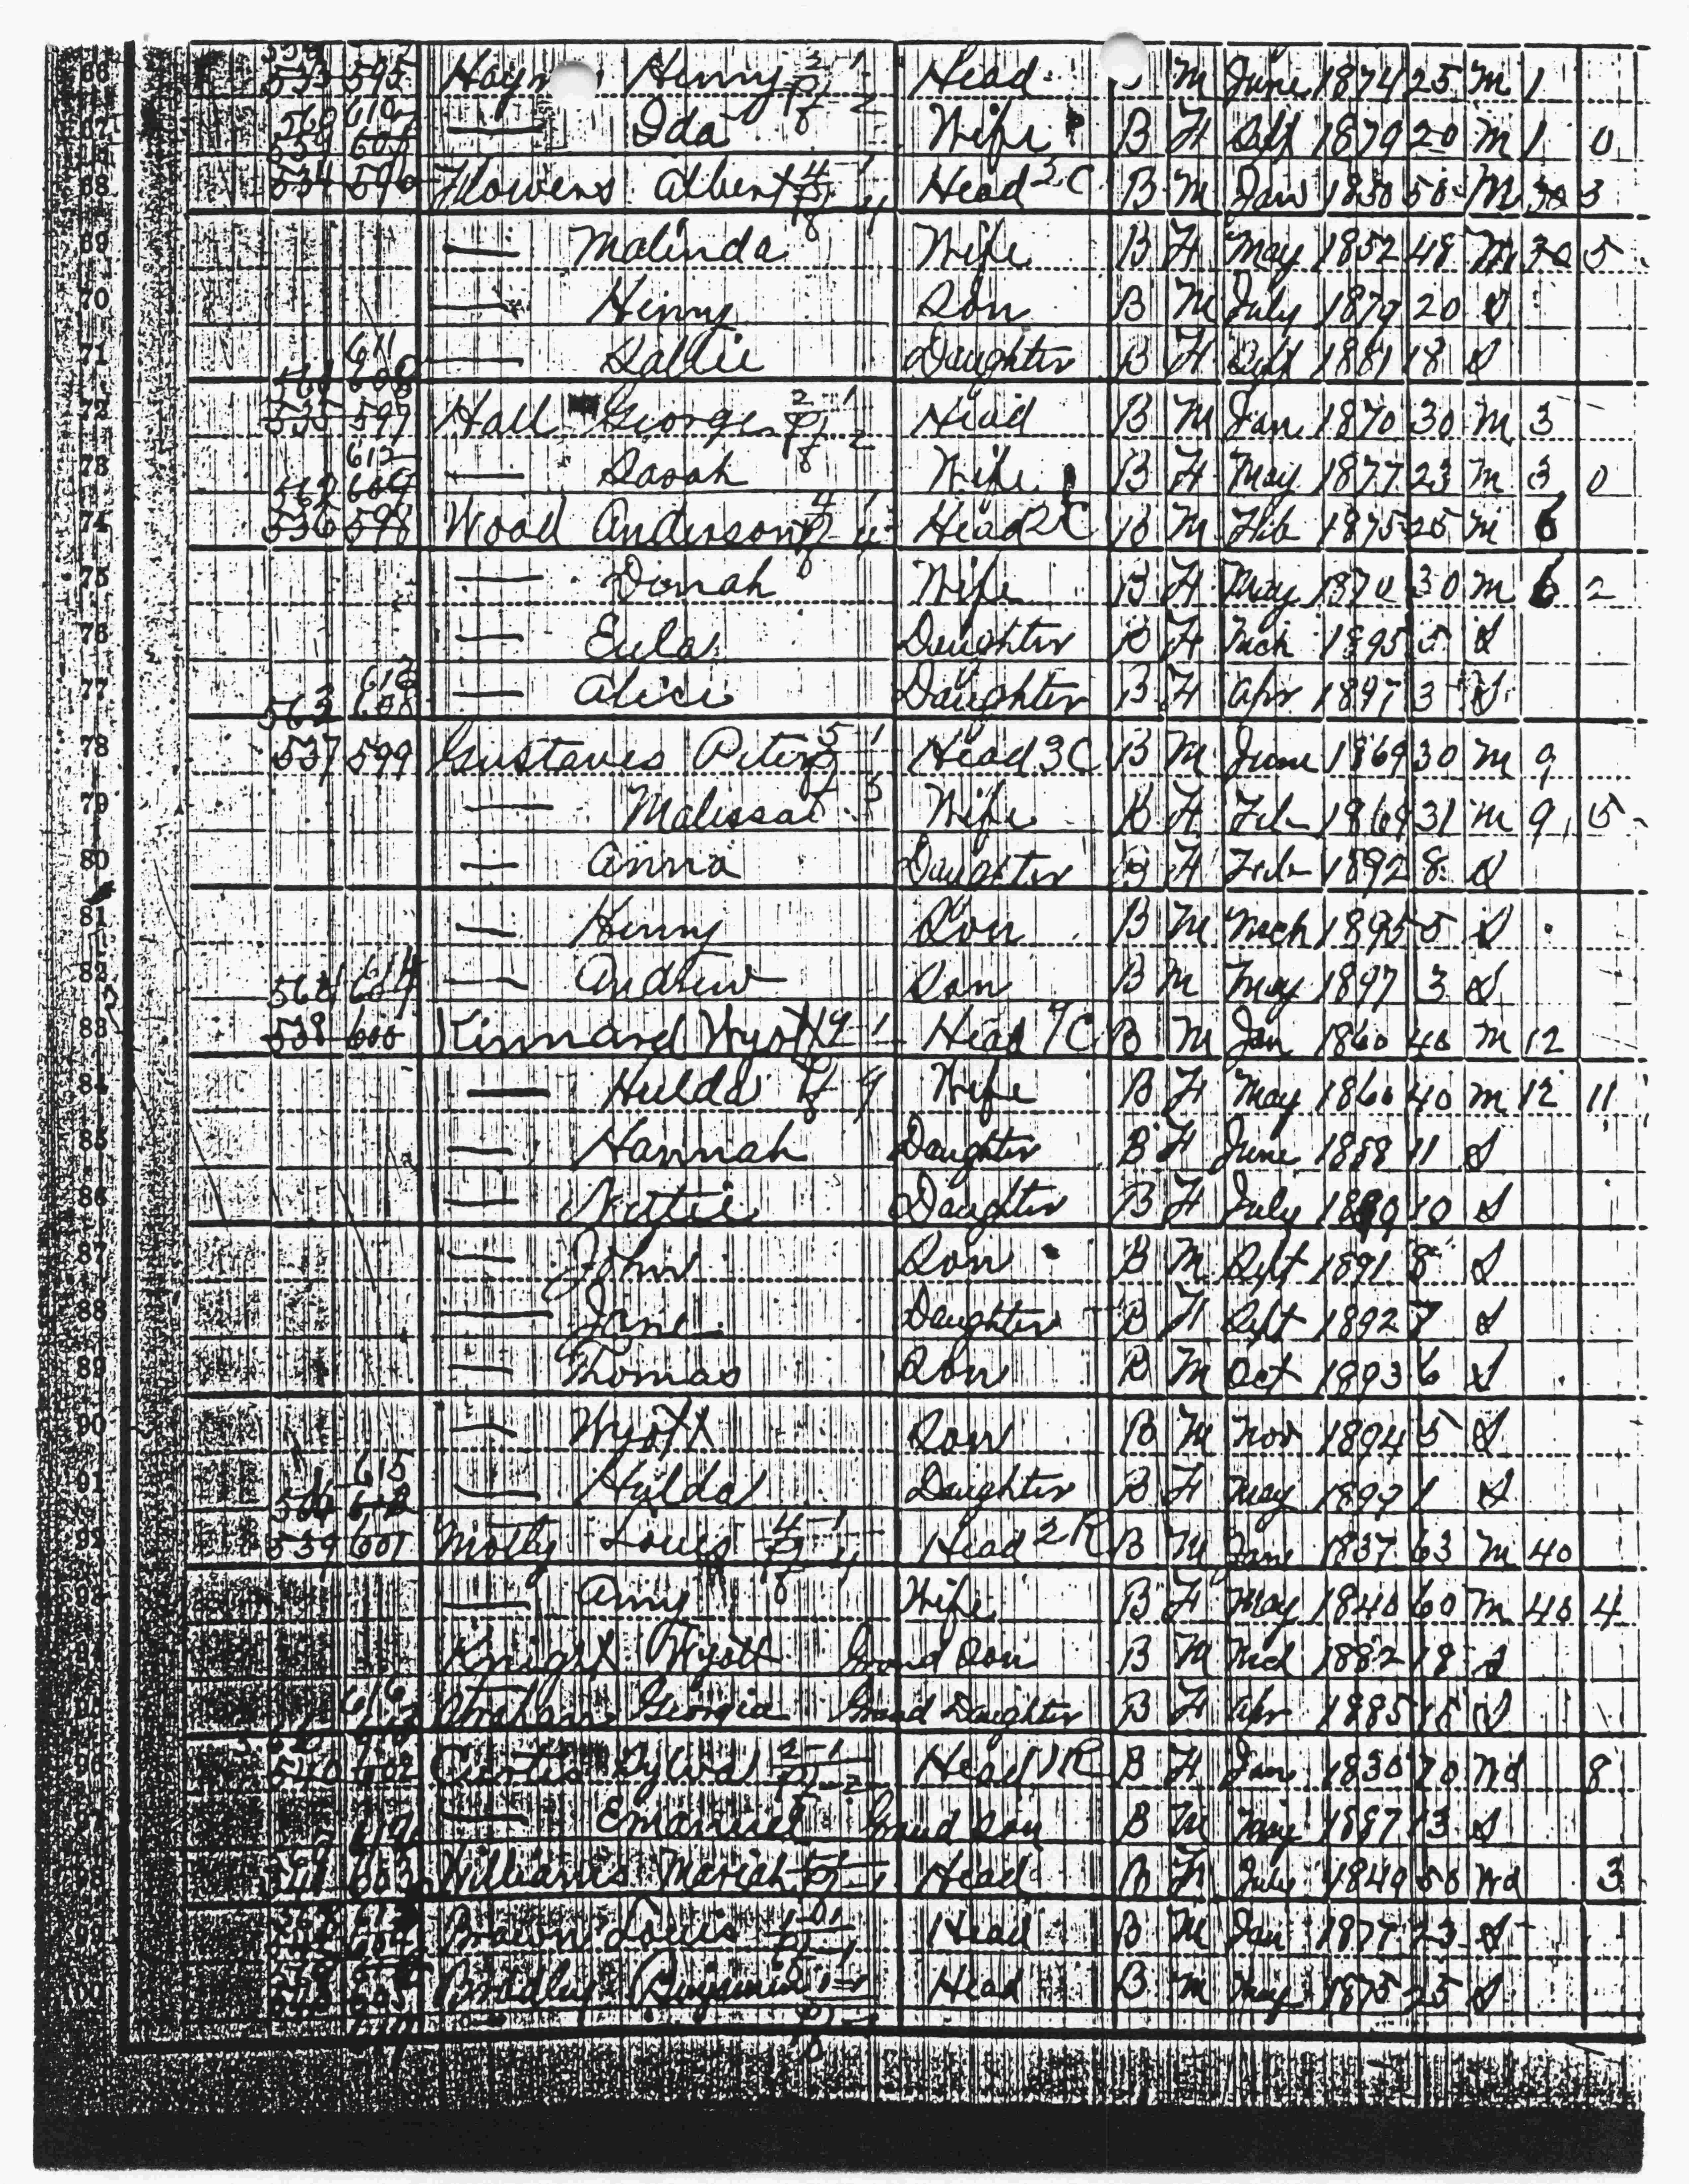 66 595 Henry Head M June 1874 25 M 1
67 — Ida Wife B F Sept 1879 20 M 1 0
68 534 596 Flowers Albert Head 2 C B M Jan 1850 50 M 30 3
69 — Malinda Wife B F May 1852 48 M 30 5
70 — Henry Son B M July 1879 20 S
71 — Sallie Daughter B F Sept 1881 18 S
72 535 597 Hall George Head B M Jan 1870 30 M 3
73 — Sarah Wife B F May 1877 23 M 3 0
74 536 598 Wood Anderson Head 2 C B M Feb 1875 25 M 6
75 — Donah Wife B F May 1870 30 M 6 2
76 — Eula Daughter B F Mch 1895 5 S
77 — Alice Daughter B F Apr 1897 3 S
78 537 599 Gustaves Peter Head 3 C B M June 1869 30 M 9
79 — Malissa Wife B F Feb 1869 31 M 9 5
80 — Anna Daughter B F Feb 1892 8 S
81 — Henry Son B M Mch 1895 5 S
82 — Andrew Son B M May 1897 3 S
83 538 600 Kinnard Wyatt Head 7 C B M Jan 1860 40 M 12
84 — Hulda Wife B F May 1860 40 M 12 11
85 — Hannah Daughter B F June 1888 11 S
86 — Nettie Daughter B F July 10 S
87 — John Son B M Sept 1891 8 S
88 — Jane Daughter B F Sept 1892 7 S
89 — Thomas Son B M Oct 1893 6 S
90 — Wyatt Son B M Nov 1894 5 S
91 — Hulda Daughter B F May 1 S
92 539 601 Motly Louis Head 2 R B M Jan 1837 63 M 40
93 — Amy Wife B F May 1840 60 M 40 4
94 Knight Wyatt Grand Son B M Mch 1882 18 S
95 Georgia Grand Daughter B F Apr 1885 15 S
96 540 602 Curtis Sylva Head 1 R B F Jan 1830 70 Wd 8
97 — Grand Son B M May 1887 13 S
98 541 603 Williams Mariah Head B F July 1849 50 Wd 3
99 604 Brawn Louis Head B M Jan 1877 23 S
100 605 Bradley Benjamin Head B M May 1875 25 S